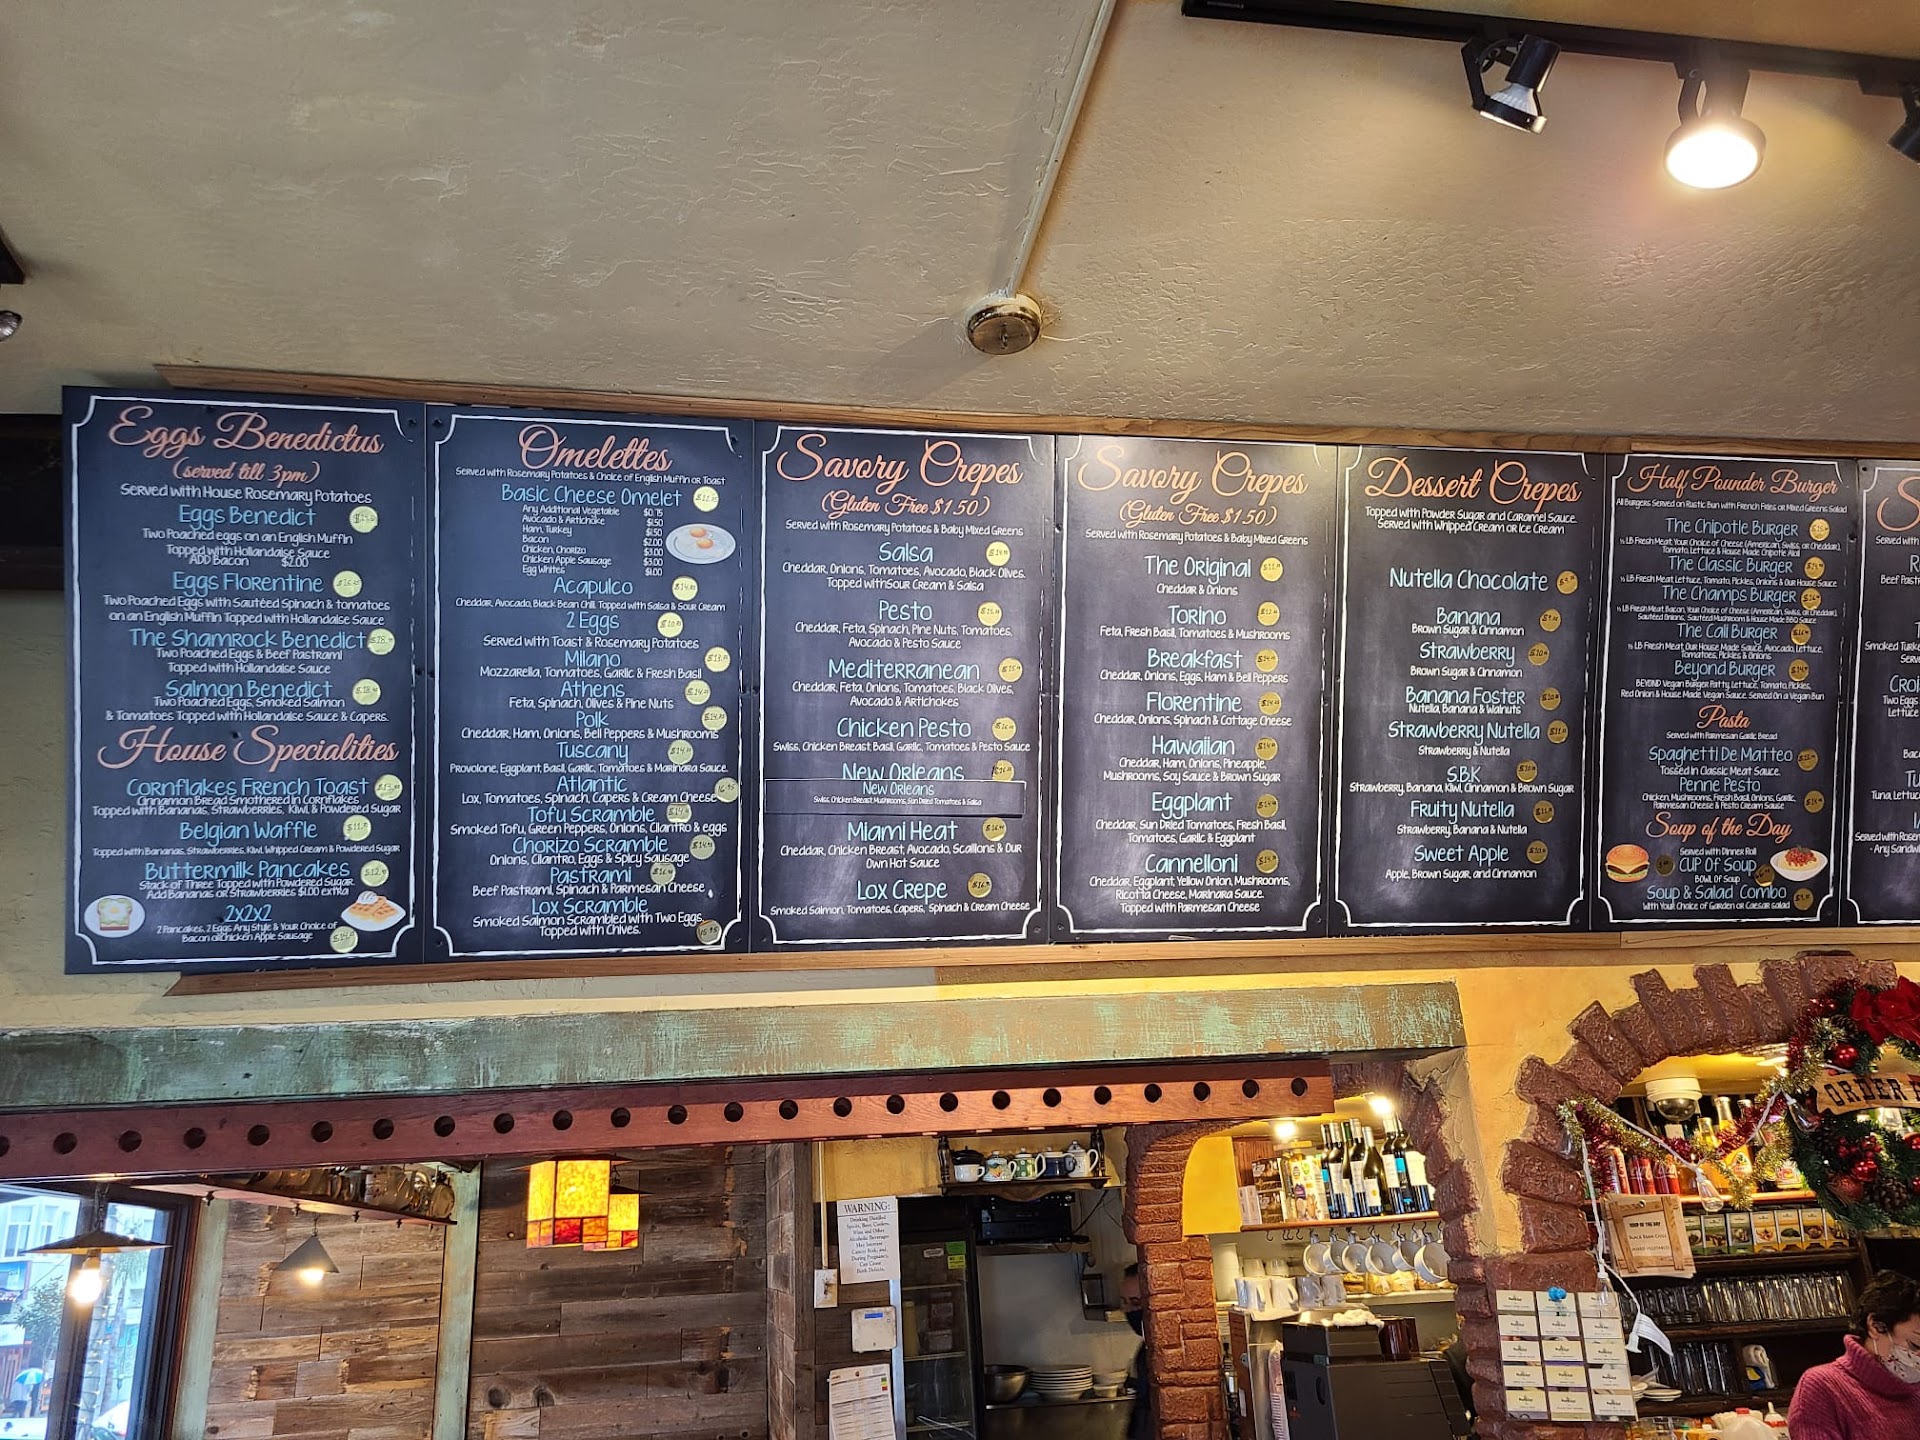 Eggs Benedictus
(served till 3pm)
Served with House Rosemary Potatoes
Eggs Benedict
Two Poached eggs on an English Muffin
Topped with Hollandaise Sauce
ADD Bacon $2.00
Eggs Florentine
Two Poached Eggs with Sautéed Spinach & tomatoes
on an English Muffin Topped with Hollandaise Sauce
The Shamrock Benedict
Two Poached Eggs & Beef Pastrami
Topped with Hollandaise Sauce
Salmon Benedict
Two Poached Eggs, Smoked Salmon
& Tomatoes Topped with Hollandaise Sauce & Capers.
House Specialities
Cornflakes French Toast
Cinnamon Bread Smothered in Cornflakes
Topped with Bananas, Strawberries, Kiwi, & Powdered Sugar
Belgian Waffle
Topped with Bananas, Strawberries, Kiwi, Whipped Cream & Powdered Sugar
Buttermilk Pancakes
Stack of Three Topped with Powdered Sugar.
Add Bananas or Strawberries $1.00 extra
2x2x2
2 Pancakes, 2 Eggs Any Style & Your Choice of
Bacon or Chicken Apple Sausage
Omelettes
Served with Rosemary Potatoes & Choice of English Muffin or Toast
Basic Cheese Omelet
Any Additional Vegetable $0.75
Avocado & Artichoke $1.50
Ham, Turkey $1.50
Bacon $2.00
Chicken, Chorizo $3.00
Chicken Apple Sausage $3.00
Egg Whites $1.00
Acapulco
Cheddar, Avocado, Black Bean Chili. Topped with Salsa & Sour Cream
2 Eggs
Served with Toast & Rosemary Potatoes
Milano
Mozzarella, Tomatoes, Garlic & Fresh Basil
Athens
Feta, Spinach, Olives & Pine Nuts
Polk
Cheddar, Ham, Onions, Bell Peppers & Mushrooms
Tuscany
Provolone, Eggplant, Basil, Garlic, Tomatoes & Marinara Sauce.
Atlantic 16.95
Lox, Tomatoes, Spinach, Capers & Cream Cheese
Tofu Scramble
Smoked Tofu, Green Peppers, Onions, Cilantro & eggs
Chorizo Scramble
Onions, Cilantro, Eggs & Spicy Sausage
Pastrami
Beef Pastrami, Spinach & Parmesan Cheese
Lox Scramble
Smoked Salmon Scrambled with Two Eggs.
Topped with Chives. 16.95
Savory Crepes
(Gluten Free $1.50)
Served with Rosemary Potatoes & Baby Mixed Greens
Salsa
Cheddar, Onions, Tomatoes, Avocado, Black Olives.
Topped with Sour Cream & Salsa
Pesto
Cheddar, Feta, Spinach, Pine Nuts, Tomatoes,
Avocado & Pesto Sauce
Mediterranean
Cheddar, Feta, Onions, Tomatoes, Black Olives,
Avocado & Artichokes
Chicken Pesto
Swiss, Chicken Breast, Basil, Garlic, Tomatoes & Pesto Sauce
New Orleans
New Orleans
Swiss, Chicken Breast, Mushrooms, Sun Dried Tomatoes & Salsa
Miami Heat
Cheddar, Chicken Breast, Avocado, Scallions & Our
Own Hot Sauce
Lox Crepe
Smoked Salmon, Tomatoes, Capers, Spinach & Cream Cheese
Savory Crepes
(Gluten Free $1.50)
Served with Rosemary Potatoes & Baby Mixed Greens
The Original
Cheddar & Onions
Torino
Feta, Fresh Basil, Tomatoes & Mushrooms
Breakfast
Cheddar, Onions, Eggs, Ham & Bell Peppers
Florentine
Cheddar, Onions, Spinach & Cottage Cheese
Hawaiian
Cheddar, Ham, Onions, Pineapple,
Mushrooms, Soy Sauce & Brown Sugar
Eggplant
Cheddar, Sun Dried Tomatoes, Fresh Basil,
Tomatoes, Garlic & Eggplant
Cannelloni
Cheddar, Eggplant, Yellow Onion, Mushrooms,
Ricotta Cheese, Marinara Sauce.
Topped with Parmesan Cheese
Dessert Crepes
Topped with Powder Sugar and Caramel Sauce.
Served with Whipped Cream or Ice Cream
Nutella Chocolate
Banana
Brown Sugar & Cinnamon
Strawberry
Brown Sugar & Cinnamon
Banana Foster
Nutella, Banana & Walnuts
Strawberry Nutella
Strawberry & Nutella
S.B.K
Strawberry, Banana, Kiwi, Cinnamon & Brown Sugar
Fruity Nutella
Strawberry, Banana & Nutella
Sweet Apple
Apple, Brown Sugar, and Cinnamon
Half Pounder Burger
All Burgers Served on Rustic Bun with French Fries or Mixed Greens Salad
The Chipotle Burger
½ LB Fresh Meat, Your Choice of Cheese (American, Swiss, or Cheddar),
Tomato, Lettuce & House Made Chipotle Aioli
The Classic Burger
½ LB Fresh Meat, Lettuce, Tomato, Pickles, Onions & Our House Sauce
The Champs Burger
½ LB Fresh Meat, Bacon, Your Choice of Cheese (American, Swiss, or Cheddar),
Sautéed Onions, Sautéed Mushroom & House Made BBQ Sauce
The Cali Burger
½ LB Fresh Meat, Our House Made Sauce, Avocado, Lettuce,
Tomatoes, Pickles & Onions
Beyond Burger
BEYOND Vegan Burger Patty, Lettuce, Tomato, Pickles,
Red Onion & House Made Vegan Sauce. Served On a Vegan Bun
Pasta
Served with Parmesan Garlic Bread
Spaghetti De Matteo
Tossed in Classic Meat Sauce.
Penne Pesto
Chicken, Mushrooms, Fresh Basil, Onions, Garlic,
Parmesan Cheese & Pesto Cream Sauce
Soup of the Day
Served with Dinner Roll
Cup Of Soup
BOWL Of Soup
Soup & Salad Combo
With Your Choice of Garden or Caesar salad
WARNING:
Drinking Distilled
Spirits, Beer, Coolers,
Wine and Other
Alcoholic Beverages
May Increase
Cancer Risk, and,
During Pregnancy,
Can Cause
Birth Defects.
ORDER
SOUP OF THE DAY
BLACK BEAN CHILI
MIXED VEGETABLES